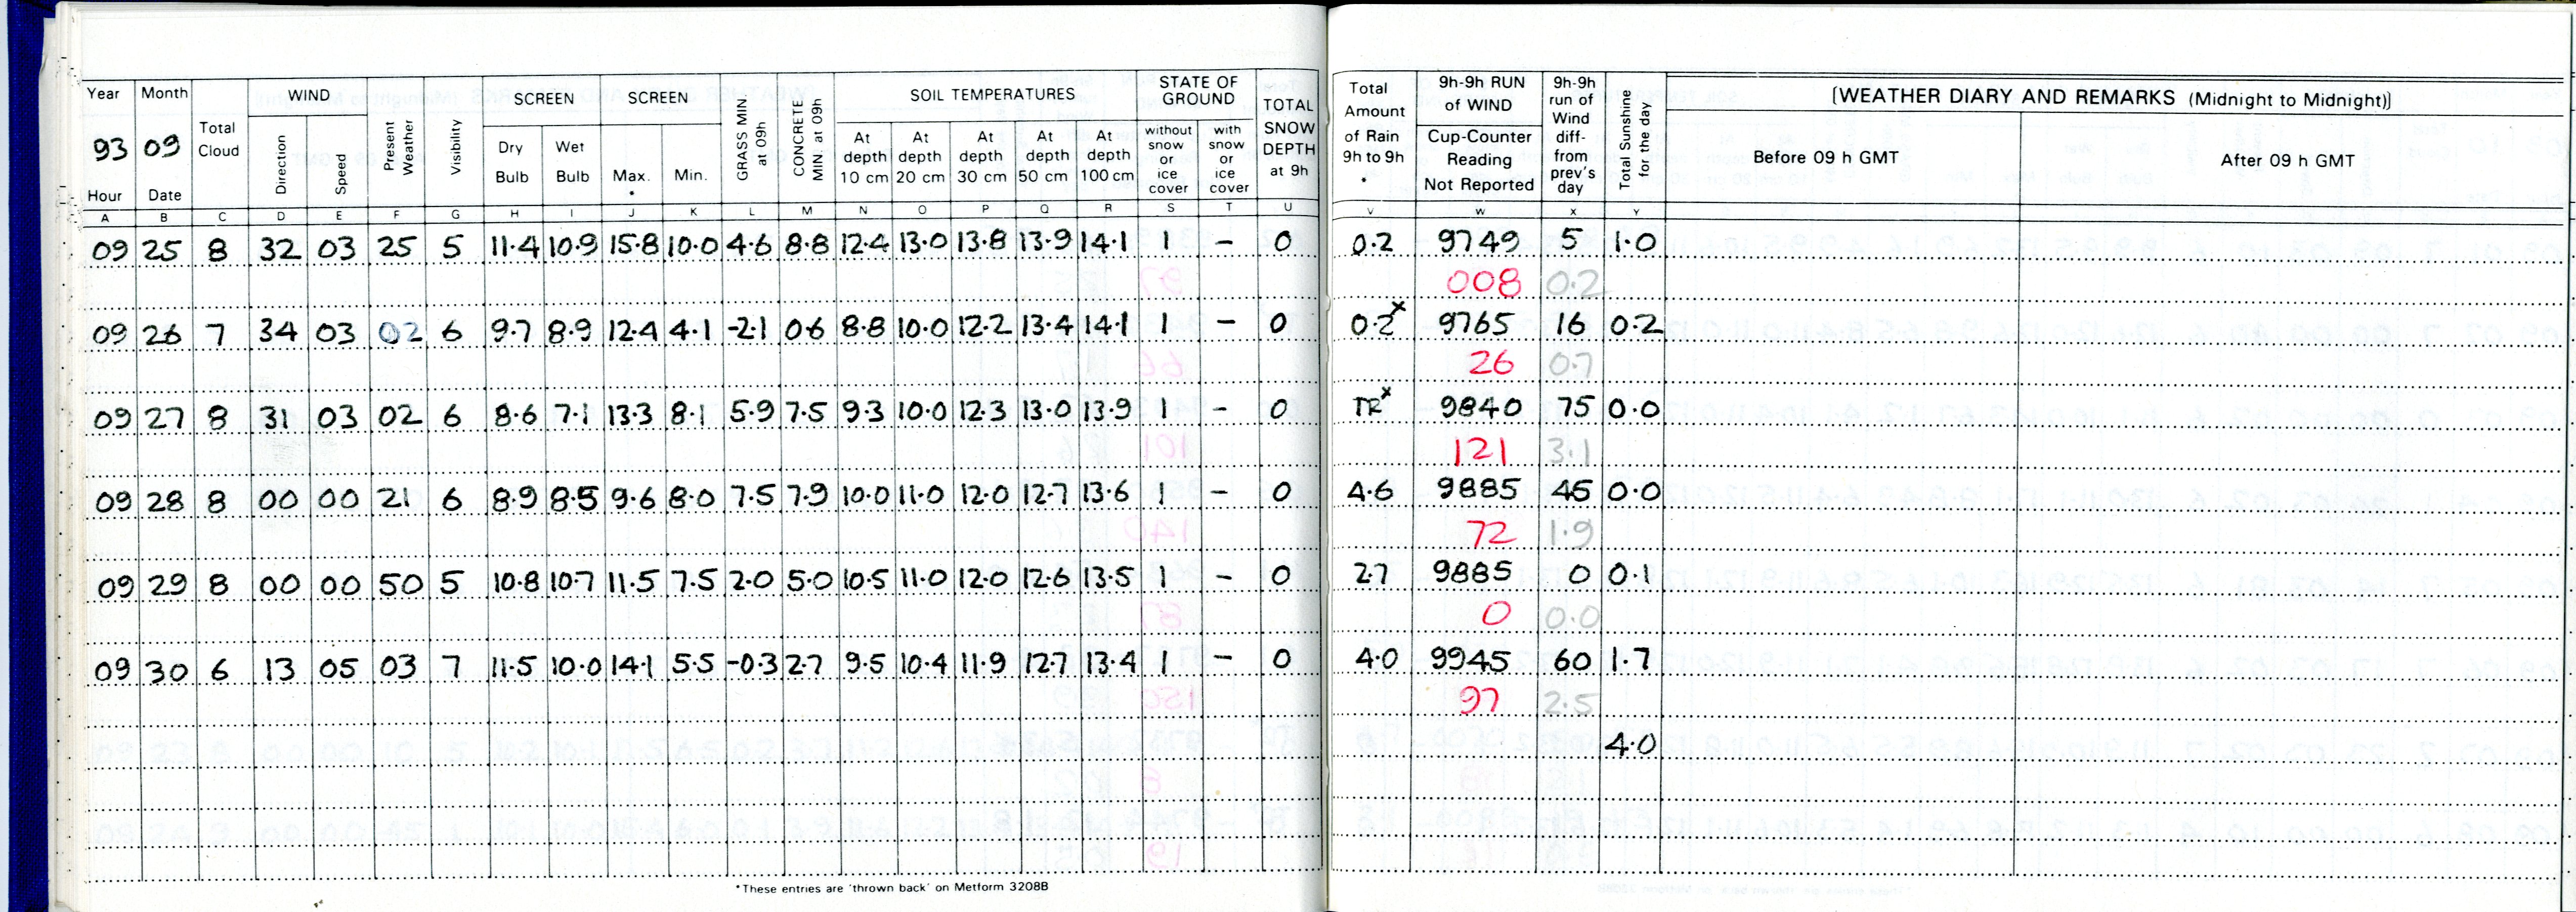 Year Month Total Cloud WIND Present Weather Visibility SCREEN SCREEN GRASS MIN at 09h CONCRETE MIN at 09h SOIL TEMPERATURES STATE OF GROUND TOTAL SNOW DEPTH at 9h Total Amount of Rain 9h to 9h * 9h-9h RUN of WIND 9h-9h run of Wind diff- from prev's day Total Sunshine for the day [WEATHER DIARY AND REMARKS (Midnight to Midnight)]
93 09 Direction Speed Dry Bulb Wet Bulb Max. * Min. At depth 10 cm At depth 20 cm At depth 30 cm At depth 50 cm At depth 100 cm without snow or ice cover with snow or ice cover Cup-Counter Reading Not Reported Before 09 h GMT After 09 h GMT
Hour Date
A B C D E F G H I J K L M N O P Q R S T U V W X Y
09 25 8 32 03 25 5 11.4 10.9 15.8 10.0 4.6 8.8 12.4 13.0 13.8 13.9 14.1 1 – 0 0.2 9749 5 1.0
008 0.2
09 26 7 34 03 02 6 9.7 8.9 12.4 4.1 -2.1 0.6 8.8 10.0 12.2 13.4 14.1 1 – 0 0.2x 9765 16 0.2
26 0.7
09 27 8 31 03 02 6 8.6 7.1 13.3 8.1 5.9 7.5 9.3 10.0 12.3 13.0 13.9 1 – 0 TRx 9840 75 0.0
121 3.1
09 28 8 00 00 21 6 8.9 8.5 9.6 8.0 7.5 7.9 10.0 11.0 12.0 12.7 13.6 1 – 0 4.6 9885 45 0.0
72 1.9
09 29 8 00 00 50 5 10.8 10.7 11.5 7.5 2.0 5.0 10.5 11.0 12.0 12.6 13.5 1 – 0 2.7 9885 0 0.1
0 0.0
09 30 6 13 05 03 7 11.5 10.0 14.1 5.5 -0.3 2.7 9.5 10.4 11.9 12.7 13.4 1 – 0 4.0 9945 60 1.7
97 2.5
4.0
*These entries are 'thrown back' on Metform 3208B